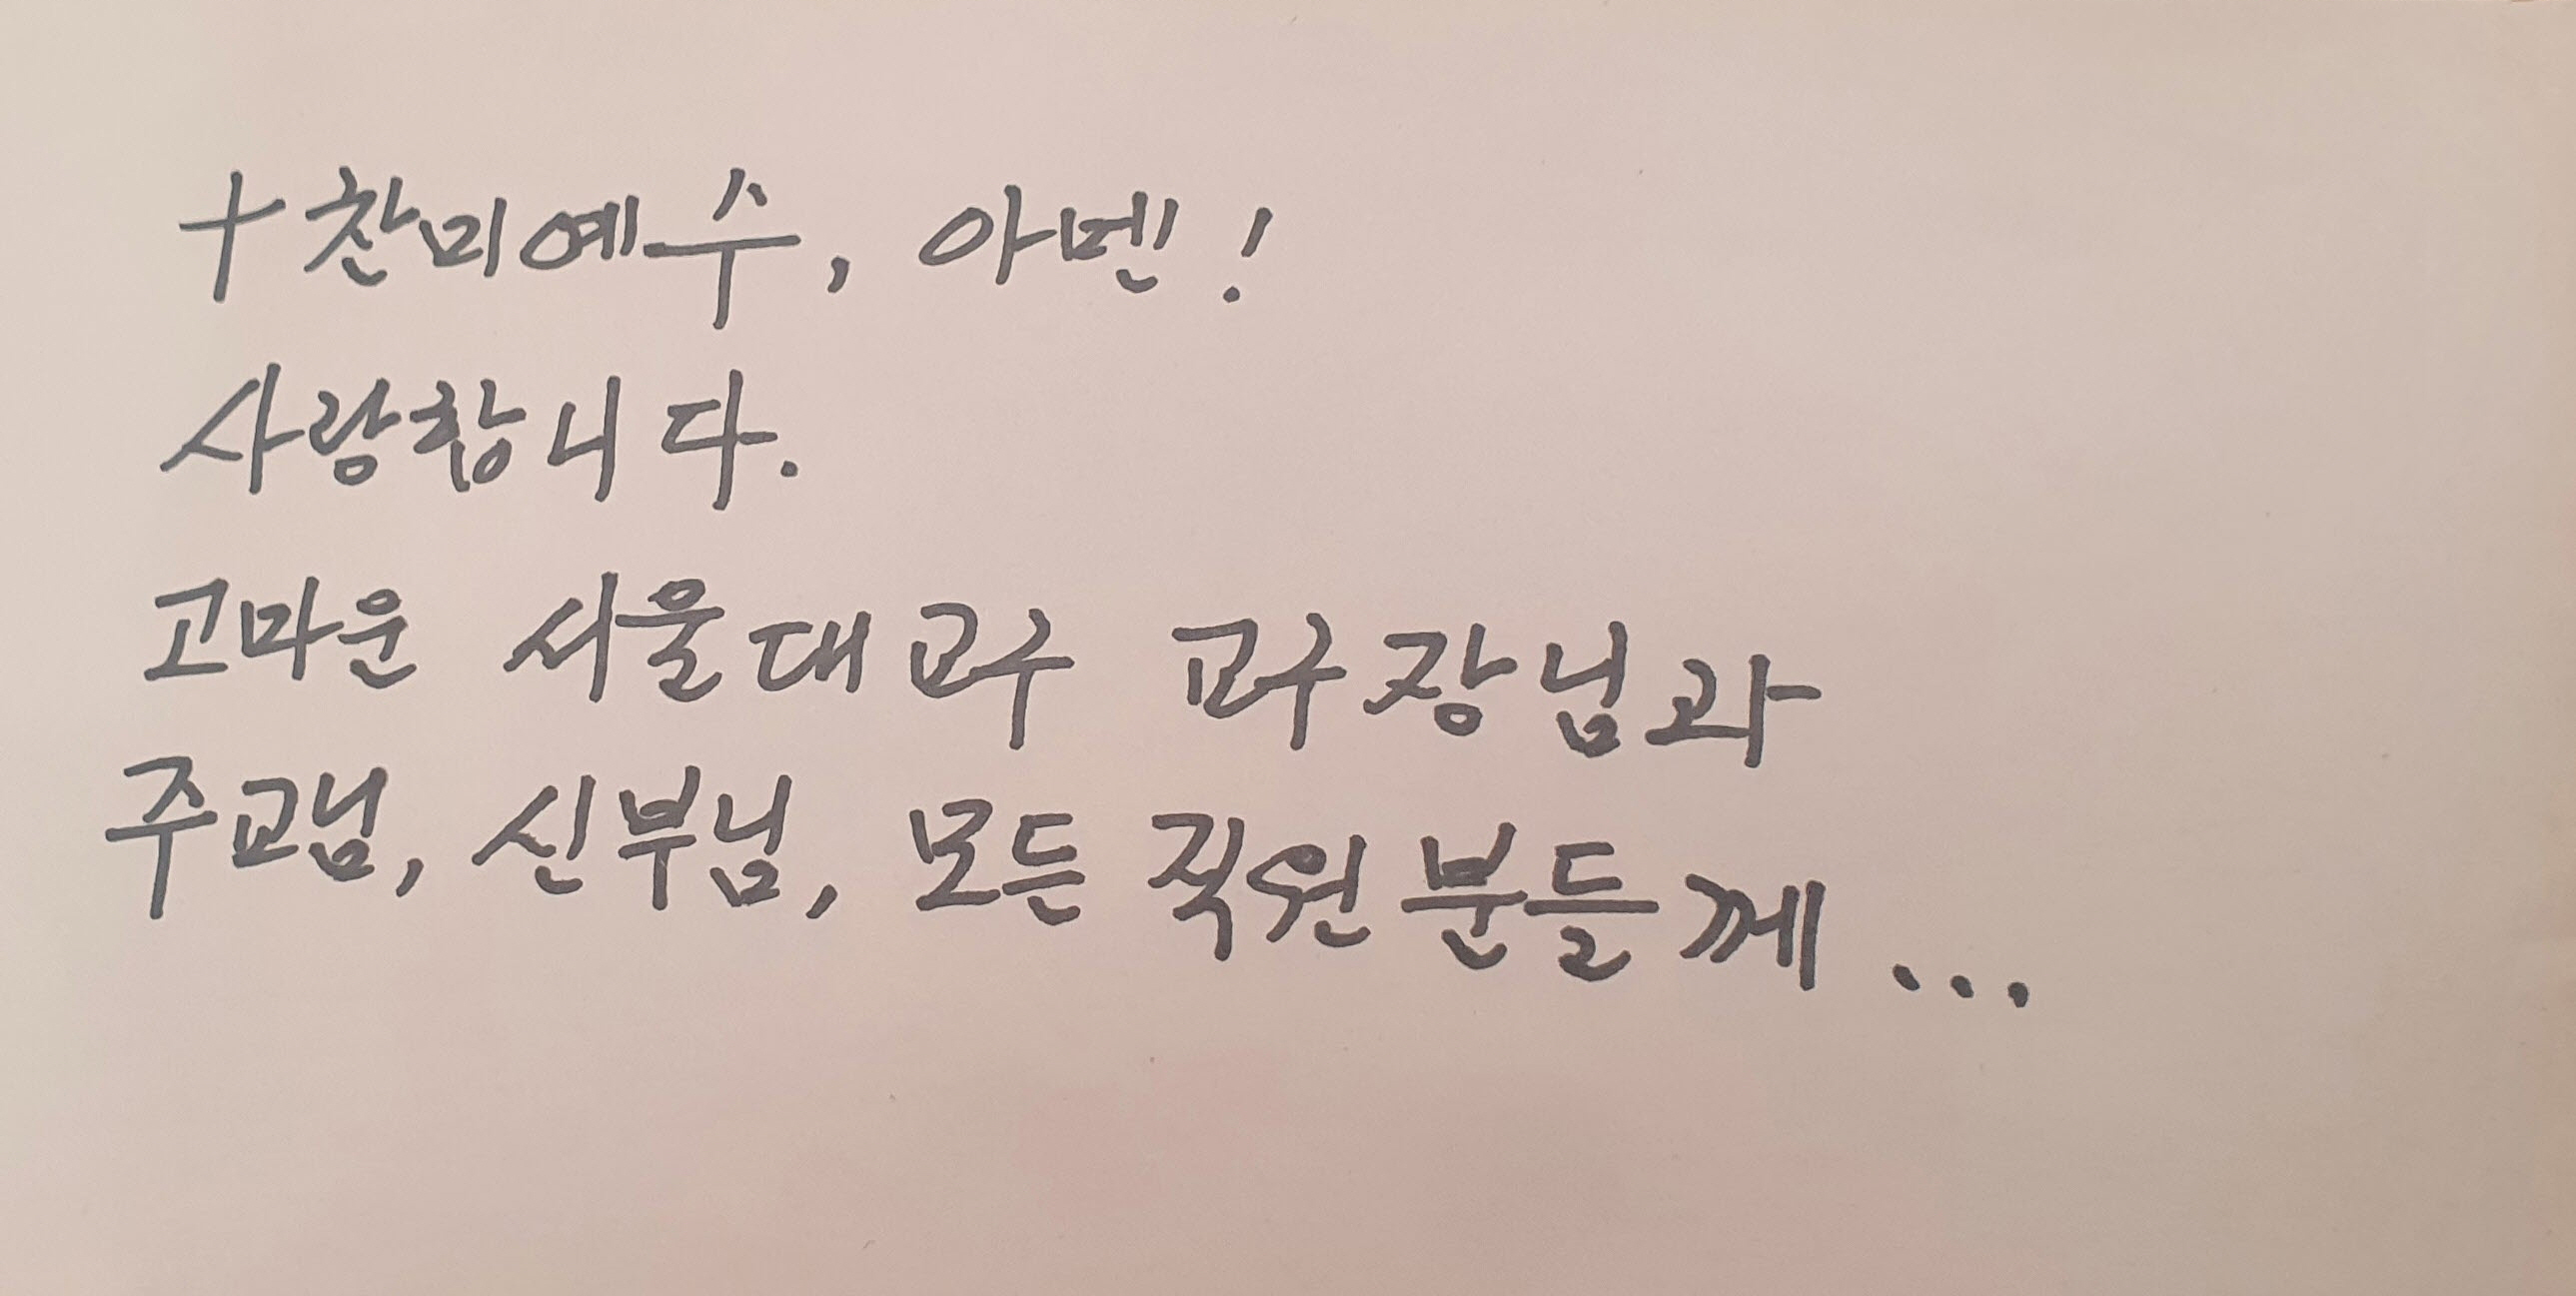 +찬미예수, 아멘!
사랑합니다.
고마운 서울대교구 교구장님과
주교님, 신부님, 모든 직원분들께...